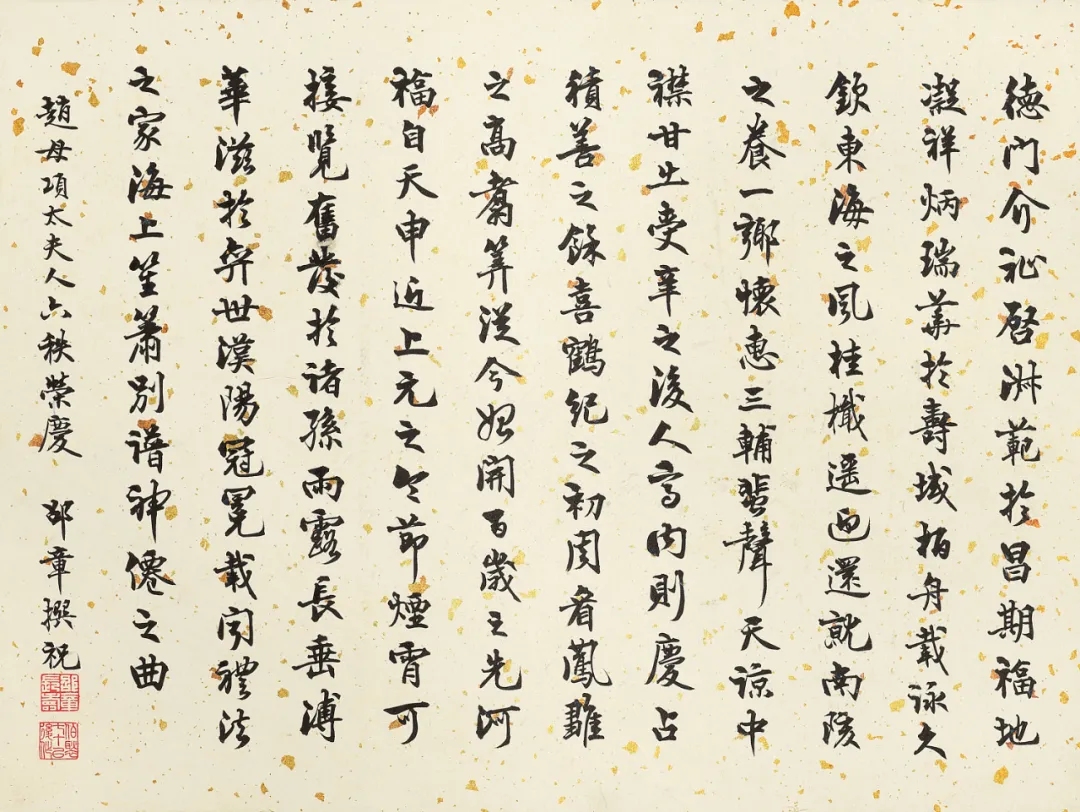 德門介祉啓淑範於昌期福地
凝祥炳瑞萼於壽域柏舟載詠久
欽東海之風桂檝遥迴還就南陔
之養一鄉懷惠三輔蜚聲天諒中
襟甘止受辛之後人言内則慶占
積善之餘喜鶴紀之初周看鳳雛
之高翥筭從今始開百歲之先河
福自天申近上元之令節煙霄可
接覽奮發於諸孫雨露長垂溥
華滋於弈世漢陽冠冕載聞禮法
之家海上笙簫别譜神僊之曲
趙母項太夫人六秩榮慶 邵章撰祝